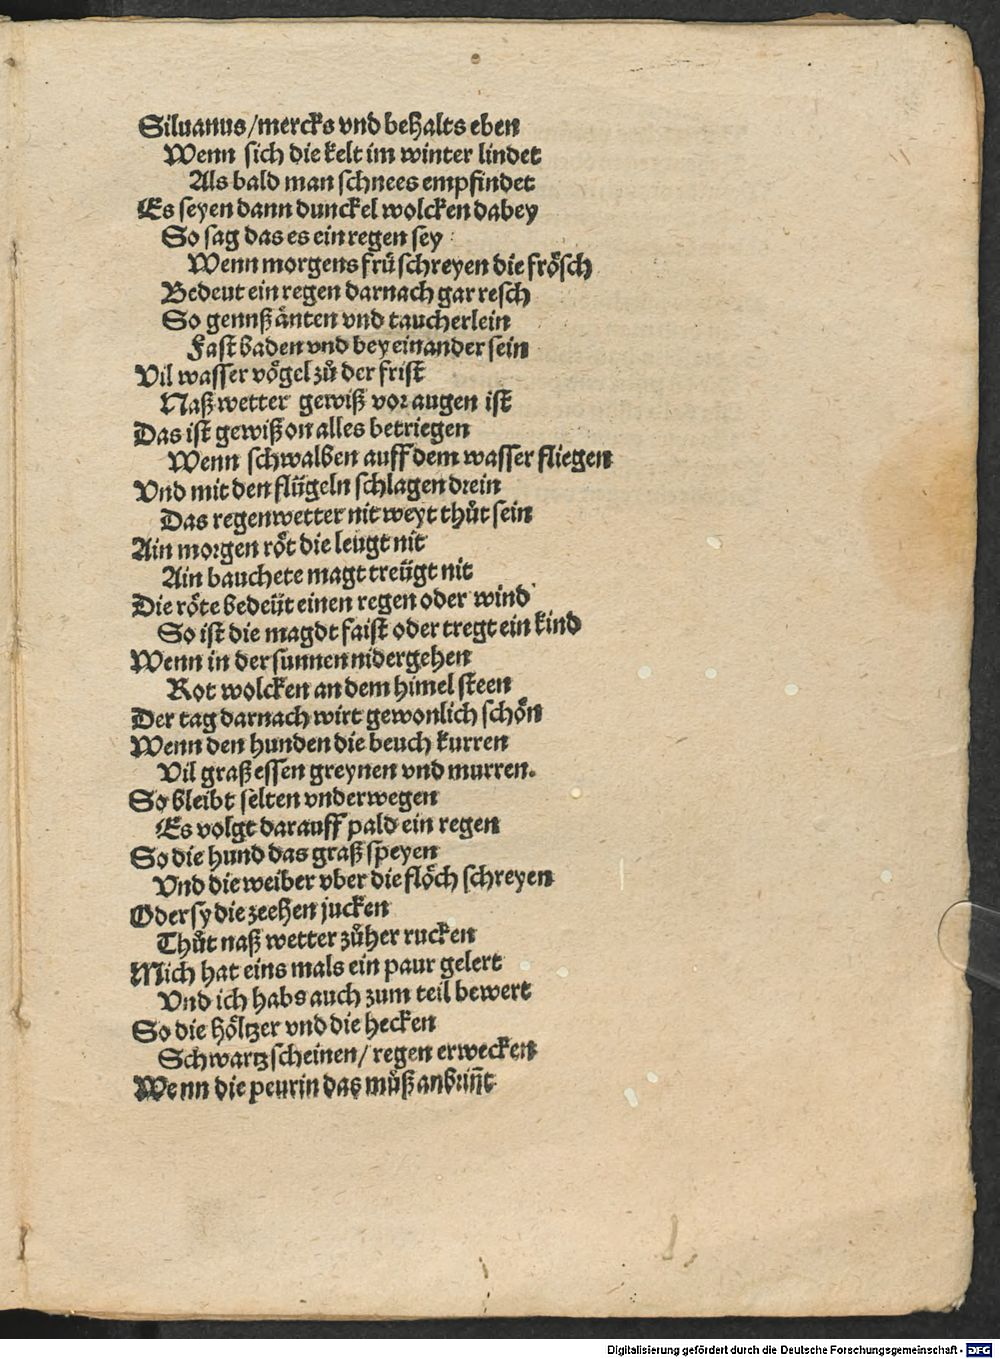 Siluanus/mercks vnd behalts eben
Wenn sich die kelt im winter lindet
Als bald man schnees empfindet
Es seyen dann dunckel wolcken dabey
So sag das es ein regen sey
Wenn morgens frü schreyen die frösch
Bedeut ein regen darnach gar resch
So gennß änten vnd taucherlein
Fast baden vnd bey einander sein
Vil wasser vögel zů der frist
Naß wetter gewiß vor augen ist
Das ist gewiß on alles betriegen
Wenn schwalben auff dem wasser fliegen
Vnd mit den flügeln schlagen drein
Das regenwetter nit weyt thůt sein
Ain morgen röt die leugt nit
Ain bauchete magt treügt nit
Die röte bedeüt einen regen oder wind
So ist die magdt faist oder tregt ein kind
Wenn in der sunnen nidergehen
Rot wolcken an dem himel steen
Der tag darnach wirt gewonlich schön
Wenn den hunden die beuch kurren
Vil graß essen greynen vnd murren.
So bleibt selten vnderwegen
Es volgt darauff pald ein regen
So die hund das graß speyen
Vnd die weiber vber die flöch schreyen
Oder sy die zeehen jucken
Thůt naß wetter zůher rucken
Mich hat eins mals ein paur gelert
Vnd ich habs auch zum teil bewert
So die höltzer vnd die hecken
Schwartz scheinen/ regen erwecken
Wenn die peurin das můß anbriñt
Digitalisierung gefördert durch die Deutsche Forschungsgemeinschaft - DFG